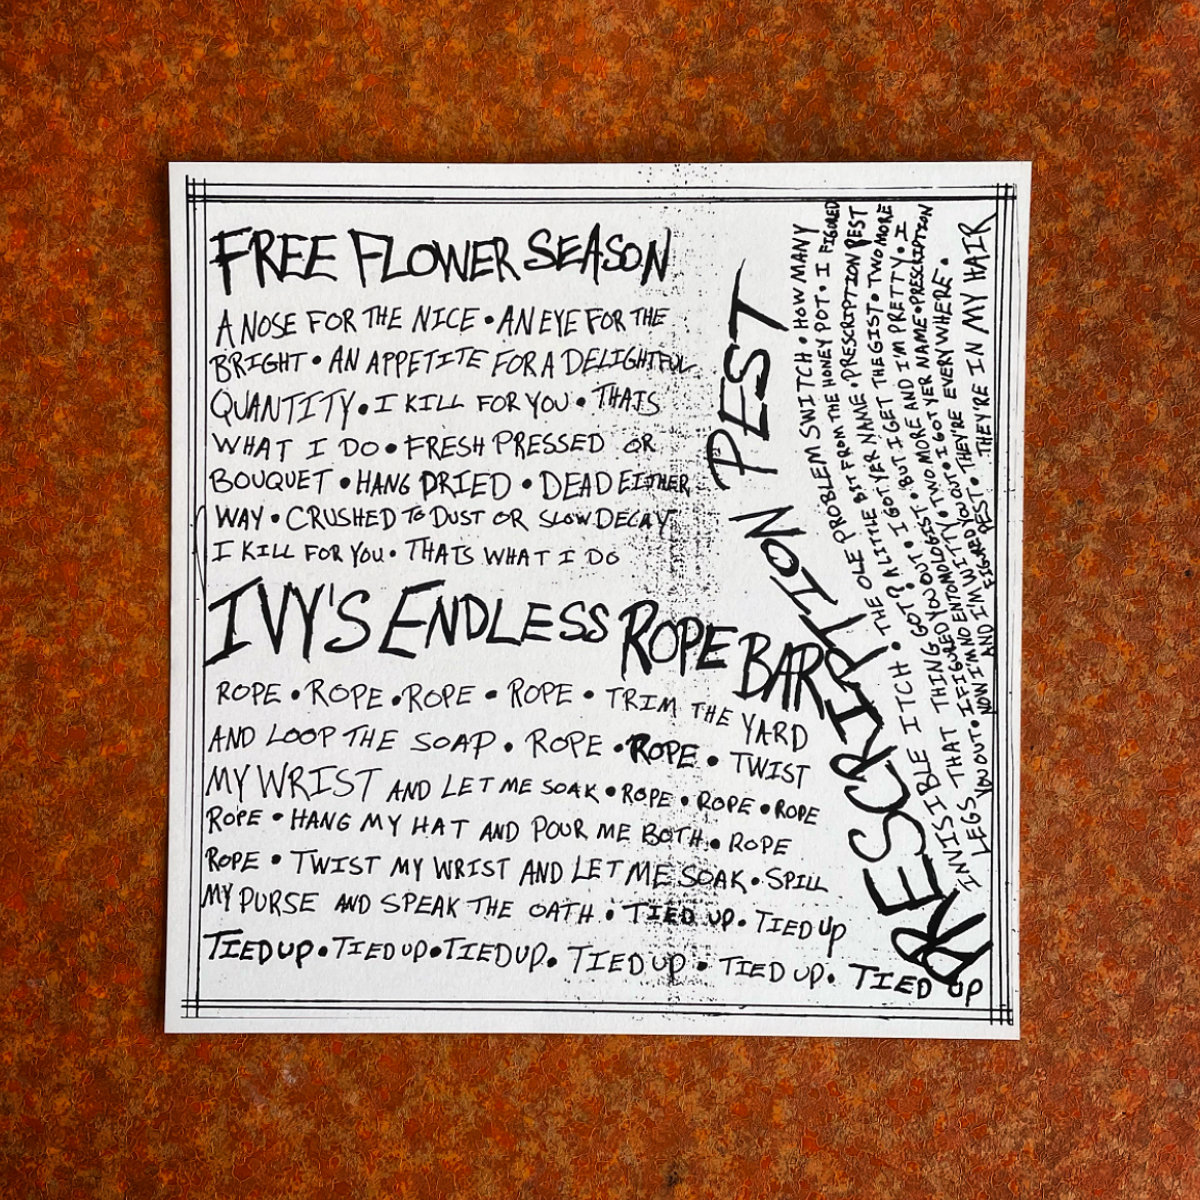 FREE FLOWER SEASON
A NOSE FOR THE NICE • AN EYE FOR THE
BRIGHT • AN APPETITE FOR A DELIGHTFUL
QUANTITY • I KILL FOR YOU • THATS
WHAT I DO • FRESH PRESSED OR
BOUQUET • HANG DRIED • DEAD EITHER
WAY • CRUSHED TO DUST OR SLOW DECAY
I KILL FOR YOU • THATS WHAT I DO
IVY'S ENDLESS ROPE BAR
ROPE • ROPE • ROPE • ROPE • TRIM THE YARD
AND LOOP THE SOAP • ROPE • ROPE • TWIST
MY WRIST AND LET ME SOAK • ROPE • ROPE • ROPE
ROPE • HANG MY HAT AND POUR ME BOTH • ROPE
ROPE • TWIST MY WRIST AND LET ME SOAK • SPILL
MY PURSE AND SPEAK THE OATH • TIED UP • TIED UP
TIED UP • TIED UP • TIED UP • TIED UP • TIED UP • TIED UP
PRESCRIPTION PEST
INVISIBLE ITCH • THE OLE PROBLEM SWITCH • HOW MANY
LEGS THAT THING GOT • A LITTLE BIT FROM THE HONEY POT • I FIGURED
YOU OUT • I FIGURED YOU OUT • I GOT YER NAME • PRESCRIPTION PEST
NOW I'M NO ENTOMOLOGIST • BUT I GET THE GIST • TWO MORE
AND I'M WITTY • TWO MORE AND I'M PRETTY • I
FIGURED YOU OUT • I GOT YER NAME • PRESCRIPTION
PEST • THEY'RE EVERYWHERE •
THEY'RE IN MY HAIR